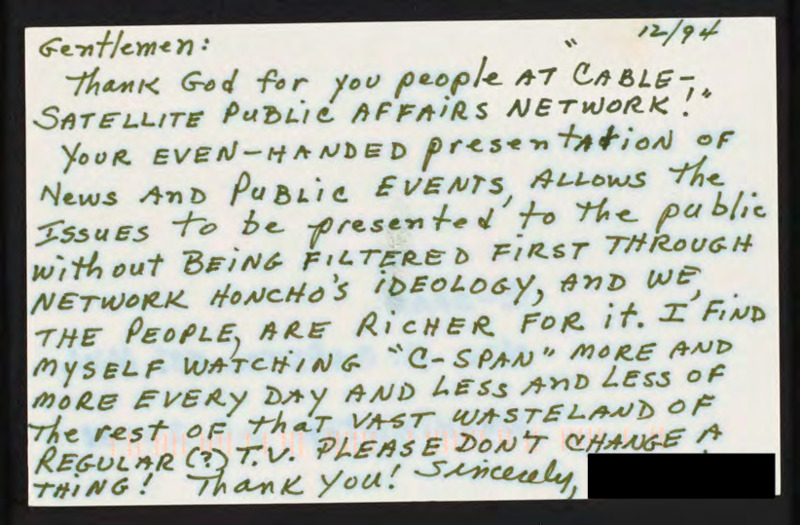 12/94
Gentlemen:
Thank God for you people AT "CABLE-
SATELLITE PUBLIC AFFAIRS NETWORK!"
YOUR EVEN-HANDED presentation OF
News AND PUBLIC EVENTS, ALLOWS the
ISSUES to be presented to the public
without BEING FILTERED FIRST THROUGH
NETWORK HONCHO'S IDEOLOGY, AND WE,
THE PEOPLE, ARE RICHER FOR it. I FIND
MYSELF WATCHING "C-SPAN" MORE AND
MORE EVERY DAY AND LESS AND LESS OF
The rest OF that VAST WASTELAND OF
REGULAR (?) T.V. PLEASE DON'T CHANGE A
THING! Thank You! Sincerely,